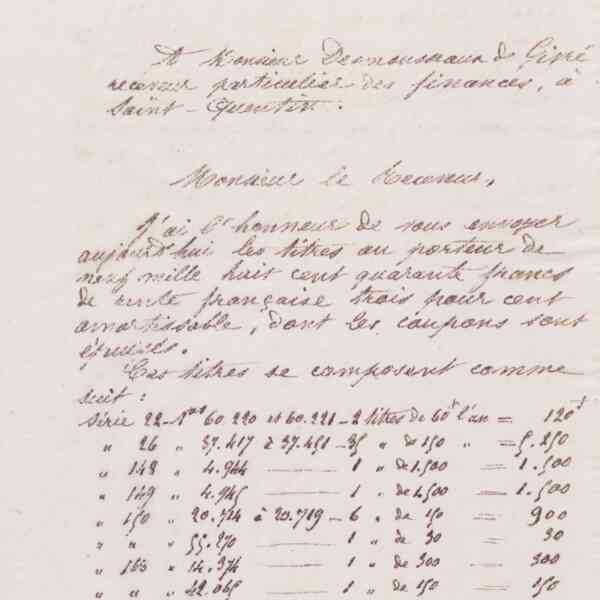 A Monsieur Desmousseaux de Givré
receveur particulier des finances, à
Saint-Quentin.
Monsieur le Receveur,
J'ai l'honneur de vous envoyer
aujourd'hui les titres au porteur de
neuf mille huit cent quarante francs
de rente française trois pour cent
amortissable, dont les coupons sont
épuisés.
Ces titres se composent comme
suit :
Série 22 - Nos 60.220 et 60.221 - 2 titres de 60f l'un = 120f
" 26 " 37.417 à 37.451 - 35 " de 150 " = 5.250
" 148 " 4.944 — 1 " de 1.500 = 1.500
" 149 " 4.945 — 1 " de 1.500 = 1.500
" 150 " 20.714 à 20.719 - 6 " de 150 = 900
" " " 55.270 — 1 " de 30 = 30
" 163 " 14.374 — 1 " de 300 = 300
" " " 42.065 — 1 " de 150 = 150